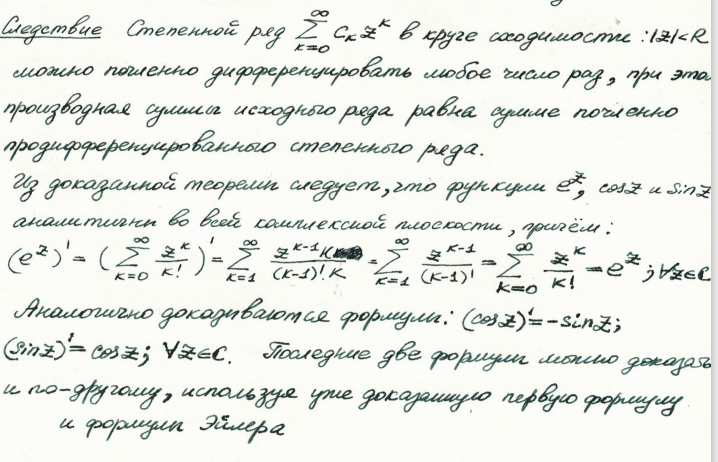 Следствие Степенной ряд ∑_{k=0}^{∞} C_k z^k в круге сходимости : |z|<R
можно почленно дифференцировать любое число раз, при этом
производная суммы исходного ряда равна сумме почленно
продифференцированного степенного ряда.
Из доказанной теоремы следует, что функции e^z, cosz и sinz
аналитичны во всей комплексной плоскости, причём:
(e^z)' = (∑_{k=0}^{∞} z^k/k!)' = ∑_{k=1}^{∞} z^{k-1}k/((k-1)!k) = ∑_{k=1}^{∞} z^{k-1}/(k-1)! = ∑_{k=0}^{∞} z^k/k! = e^z; ∀z∈C
Аналогично доказываются формулы: (cosz)'=-sinz;
(sinz)'=cosz; ∀z∈C. Последние две формулы можно доказать
и по-другому, используя уже доказанную первую формулу
и формулы Эйлера